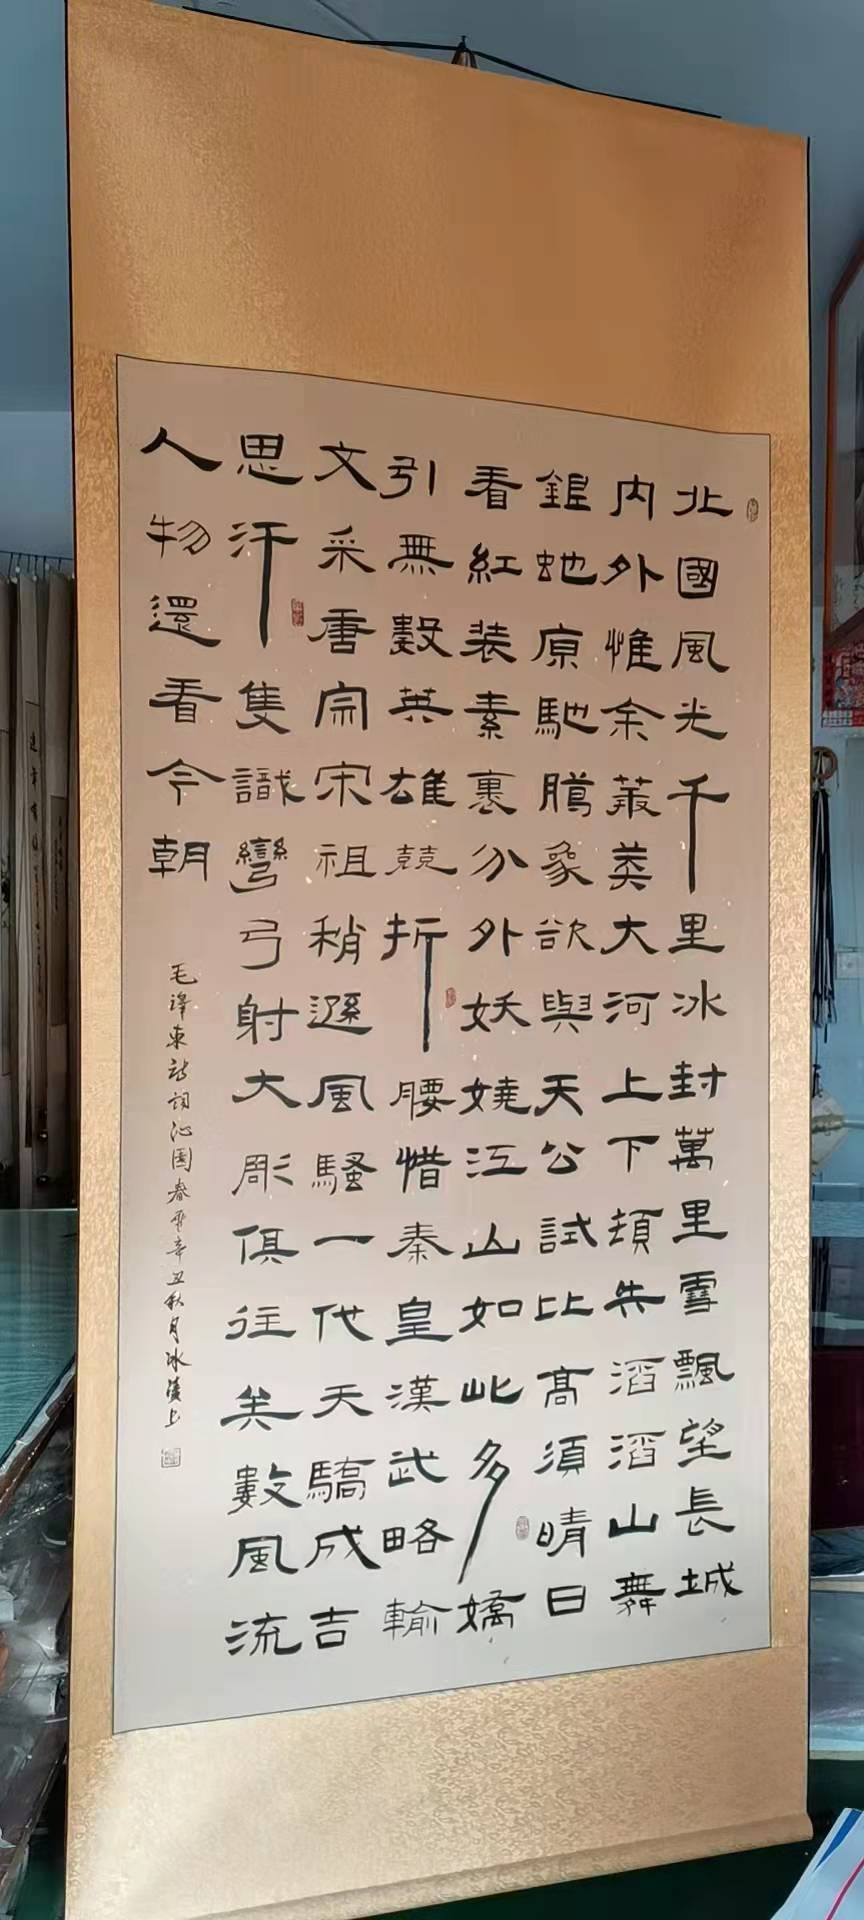 北國風光千里冰封萬里雪飄望長城
内外惟余莽莽大河上下頓失滔滔山舞
銀蛇原馳臘象欲與天公試比高須晴日
看紅装素裹分外妖嬈江山如此多嬌
引無數英雄競折腰惜秦皇漢武略輸
文采唐宗宋祖稍遜風騷一代天驕成吉
思汗隻識彎弓射大彫俱往矣數風流
人物還看今朝
毛澤東詩詞沁園春雪辛丑秋月冰凌上